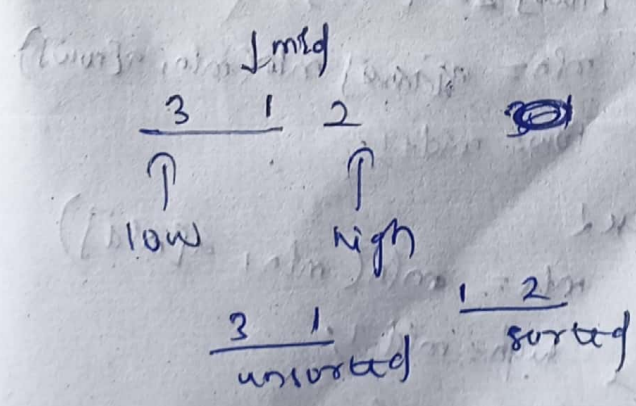 ↓ mid
3 1 2
↑ ↑
low high
1 2
3 1 sorted
unsorted